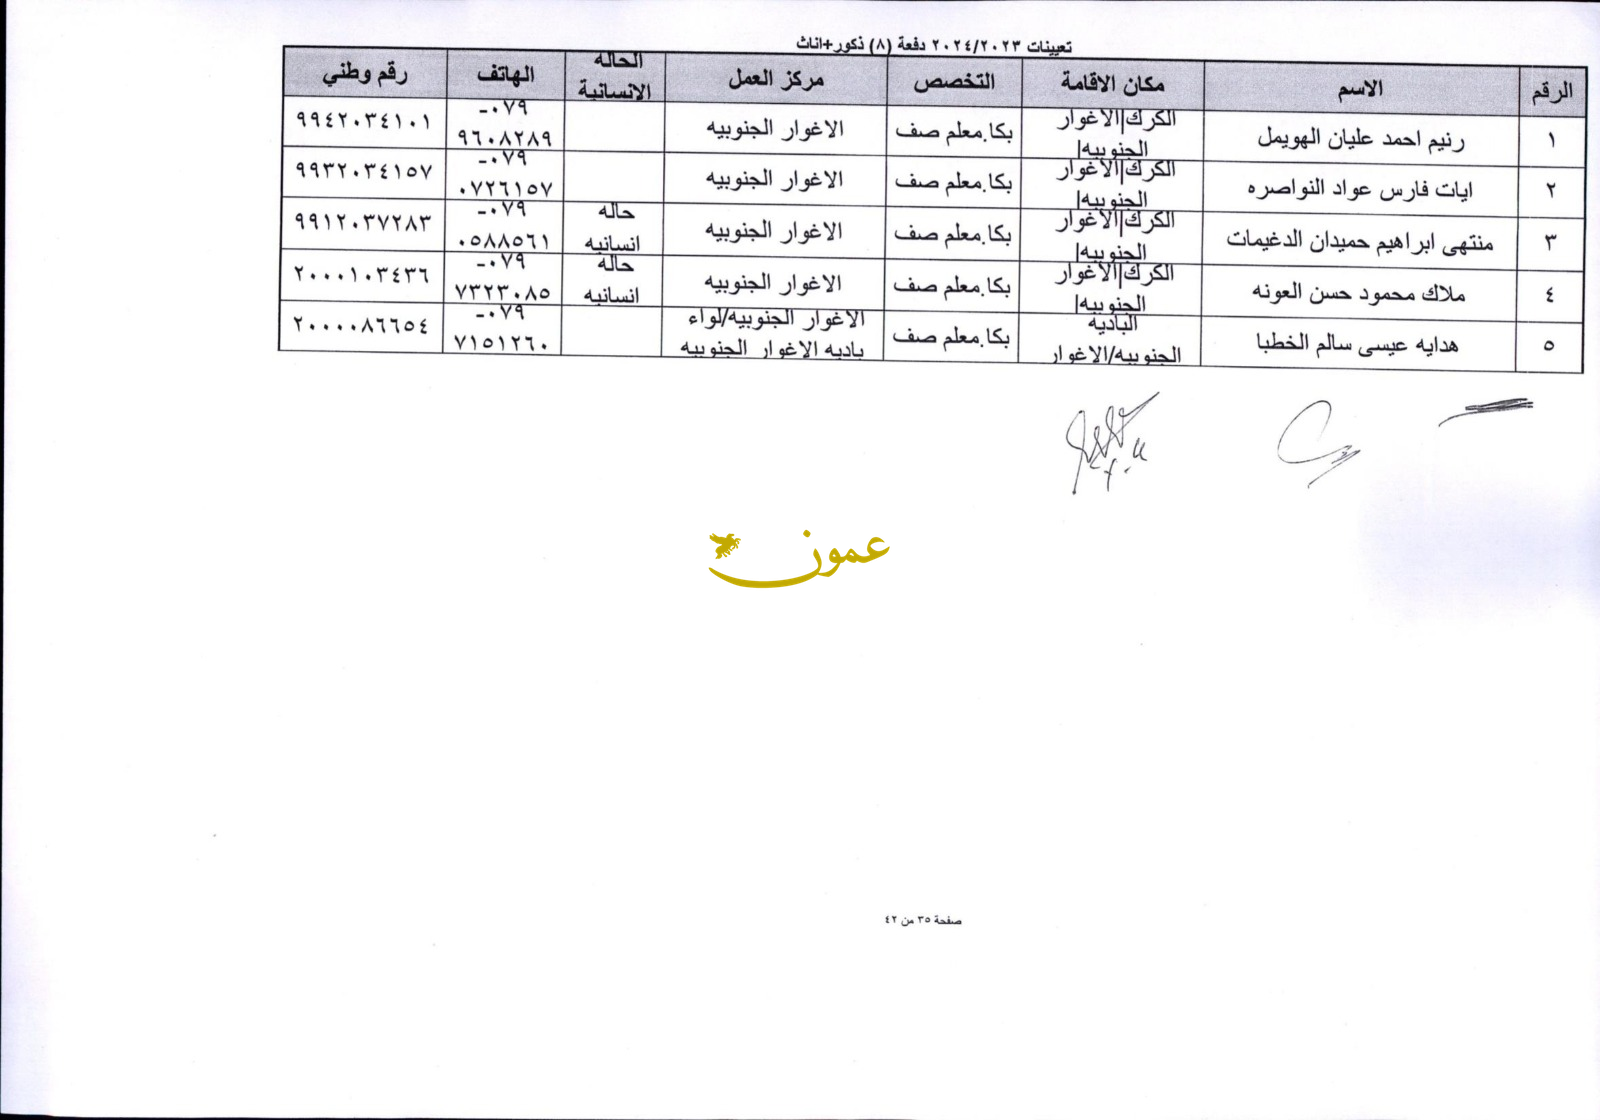 تعيينات ٢٠٢٤/٢٠٢٣ دفعة (٨) ذكور+اناث
الرقم الاسم مكان الاقامة التخصص مركز العمل الحاله الانسانية الهاتف رقم وطني
١ رنيم احمد عليان الهويمل الكرك|الاغوار الجنوبيه| بكا.معلم صف الاغوار الجنوبيه ٠٧٩-٩٦٠٨٢٨٩ ٩٩٤٢٠٣٤١٠١
٢ ايات فارس عواد النواصره الكرك|الاغوار الجنوبيه| بكا.معلم صف الاغوار الجنوبيه ٠٧٩-٠٧٢٦١٥٧ ٩٩٣٢٠٣٤١٥٧
٣ منتهى ابراهيم حميدان الدغيمات الكرك|الاغوار الجنوبيه| بكا.معلم صف الاغوار الجنوبيه حاله انسانيه ٠٧٩-٠٥٨٨٥٦١ ٩٩١٢٠٣٧٢٨٣
٤ ملاك محمود حسن العونه الكرك|الاغوار الجنوبيه| بكا.معلم صف الاغوار الجنوبيه حاله انسانيه ٠٧٩-٧٣٢٣٠٨٥ ٢٠٠٠١٠٣٤٣٦
٥ هدايه عيسى سالم الخطبا الباديه الجنوبيه/الاغوار بكا.معلم صف الاغوار الجنوبيه/لواء باديه الاغوار الجنوبيه ٠٧٩-٧١٥١٢٦٠ ٢٠٠٠٠٨٦٦٥٤
عمون
صفحة ٣٥ من ٤٢